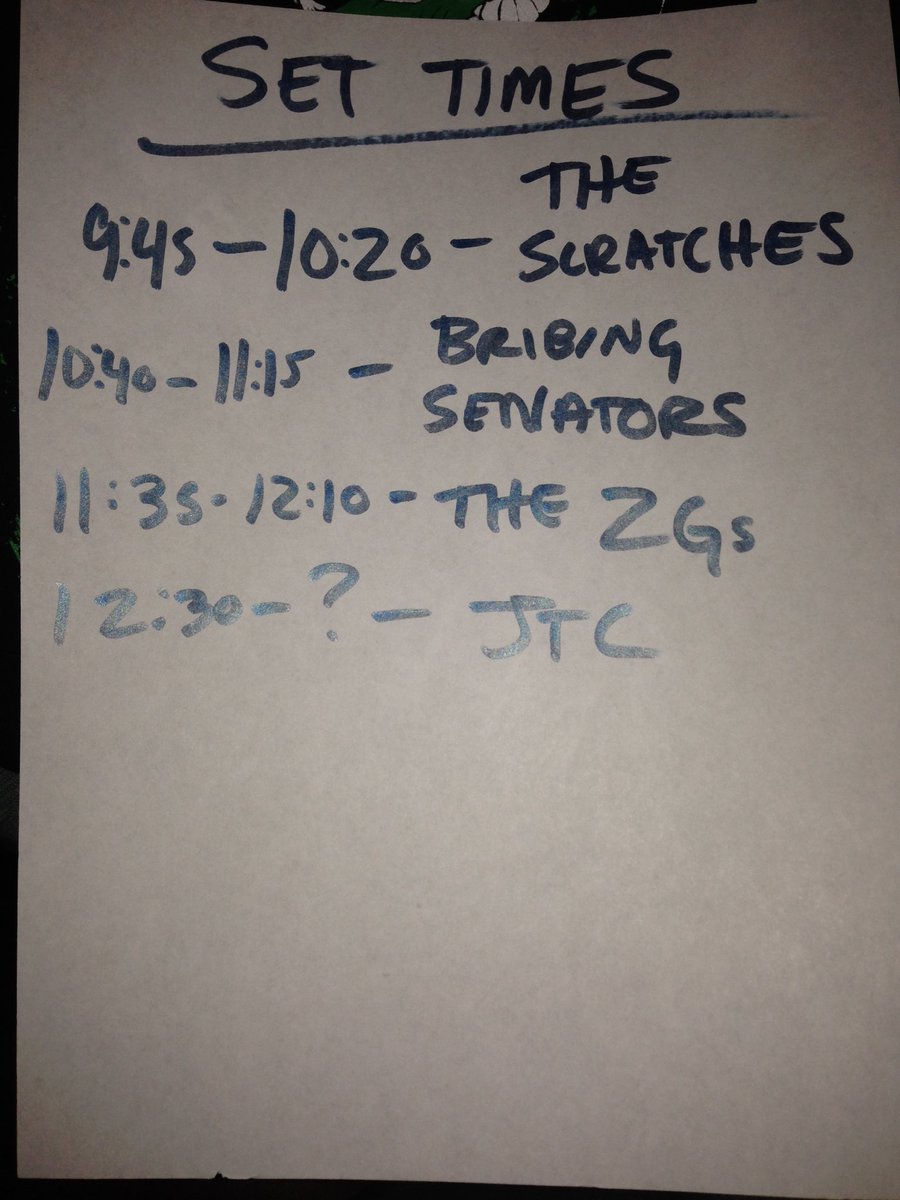 SET TIMES
9:45 - 10:20 - THE
SCRATCHES
10:40 - 11:15 - BRIBING
SENATORS
11:35 - 12:10 - THE ZGs
12:30 - ? - JTC